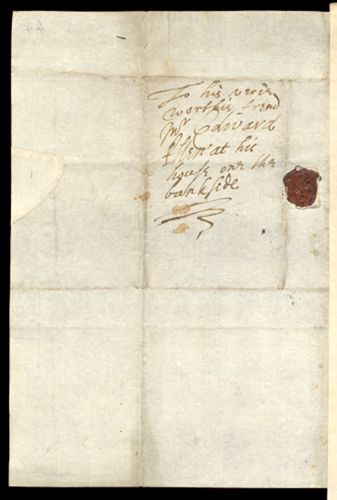 To his verie
worthie frend
Mr Edward
Allen at his
house one the
bankside